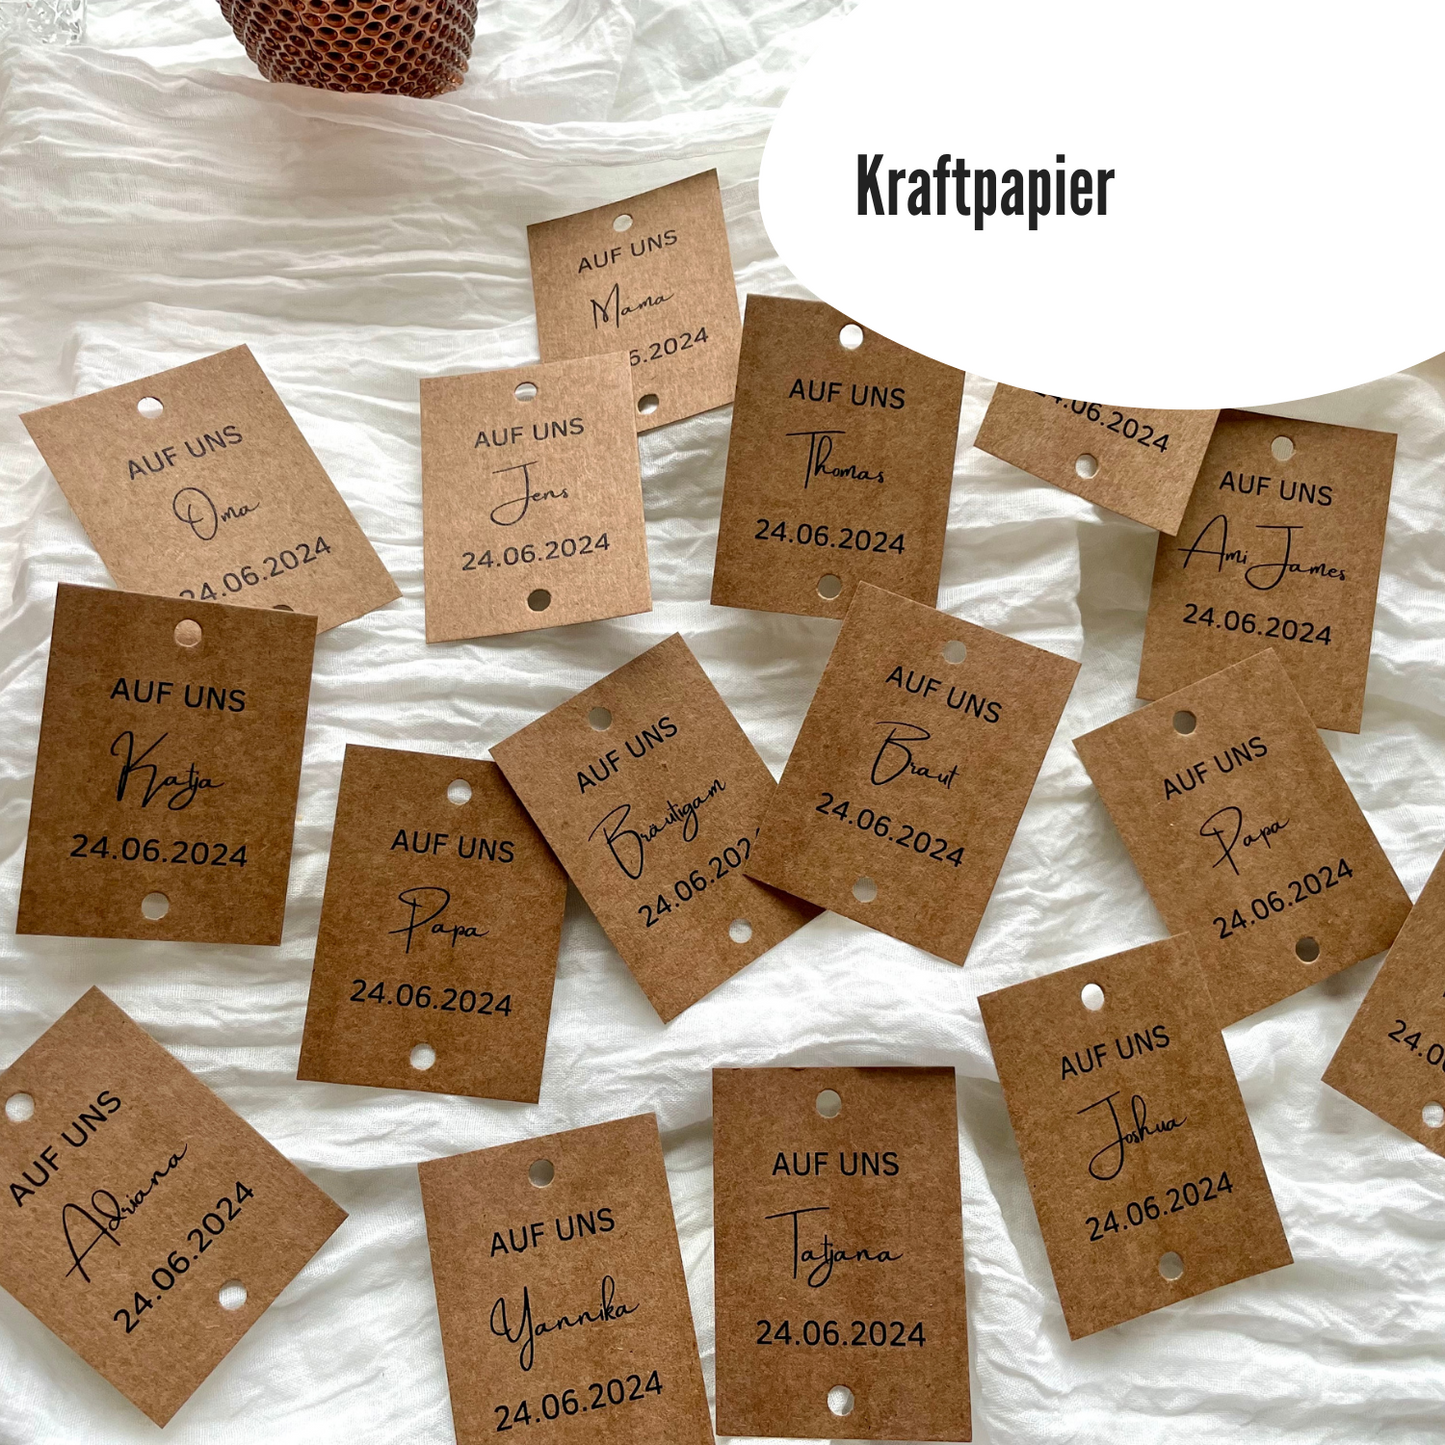 Kraftpapier
AUF UNS
Mama
6.2024
AUF UNS
Oma
24.06.2024
AUF UNS
Jens
24.06.2024
AUF UNS
Thomas
24.06.2024
24.06.2024
AUF UNS
Ami James
24.06.2024
AUF UNS
Katja
24.06.2024
AUF UNS
Papa
24.06.2024
AUF UNS
Bräutigam
24.06.202
AUF UNS
Braut
24.06.2024
AUF UNS
Papa
24.06.2024
24.0
AUF UNS
Adriana
24.06.2024
AUF UNS
Yannika
24.06.2024
AUF UNS
Tatjana
24.06.2024
AUF UNS
Joshua
24.06.2024